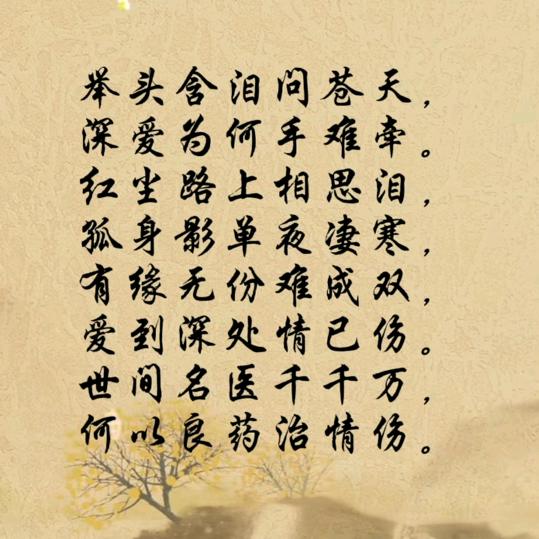 举头含泪问苍天，
深爱为何手难牵。
红尘路上相思泪，
孤身影单夜凄寒，
有缘无份难成双，
爱到深处情已伤。
世间名医千千万，
何以良药治情伤。